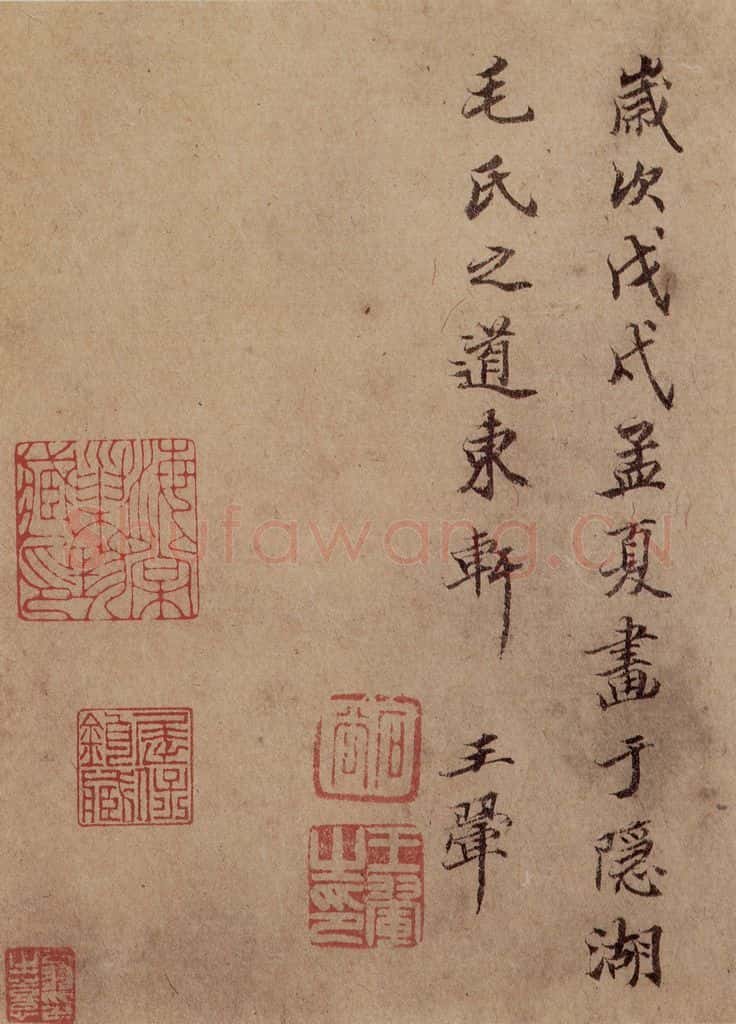 歲次戊戌孟夏畫于隱湖
毛氏之道東軒 王翬
王翬之印
Shufawang.CN